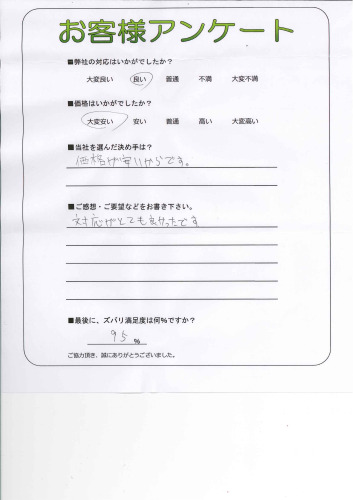 お客様アンケート
■弊社の対応はいかがでしたか？
大変良い 良い 普通 不満 大変不満
■価格はいかがでしたか？
大変安い 安い 普通 高い 大変高い
■当社を選んだ決め手は？
価格が安いからです。
■ご感想・ご要望などをお書き下さい。
対応がとても良かったです
■最後に、ズバリ満足度は何%ですか？
95 %
ご協力頂き、誠にありがとうございました。